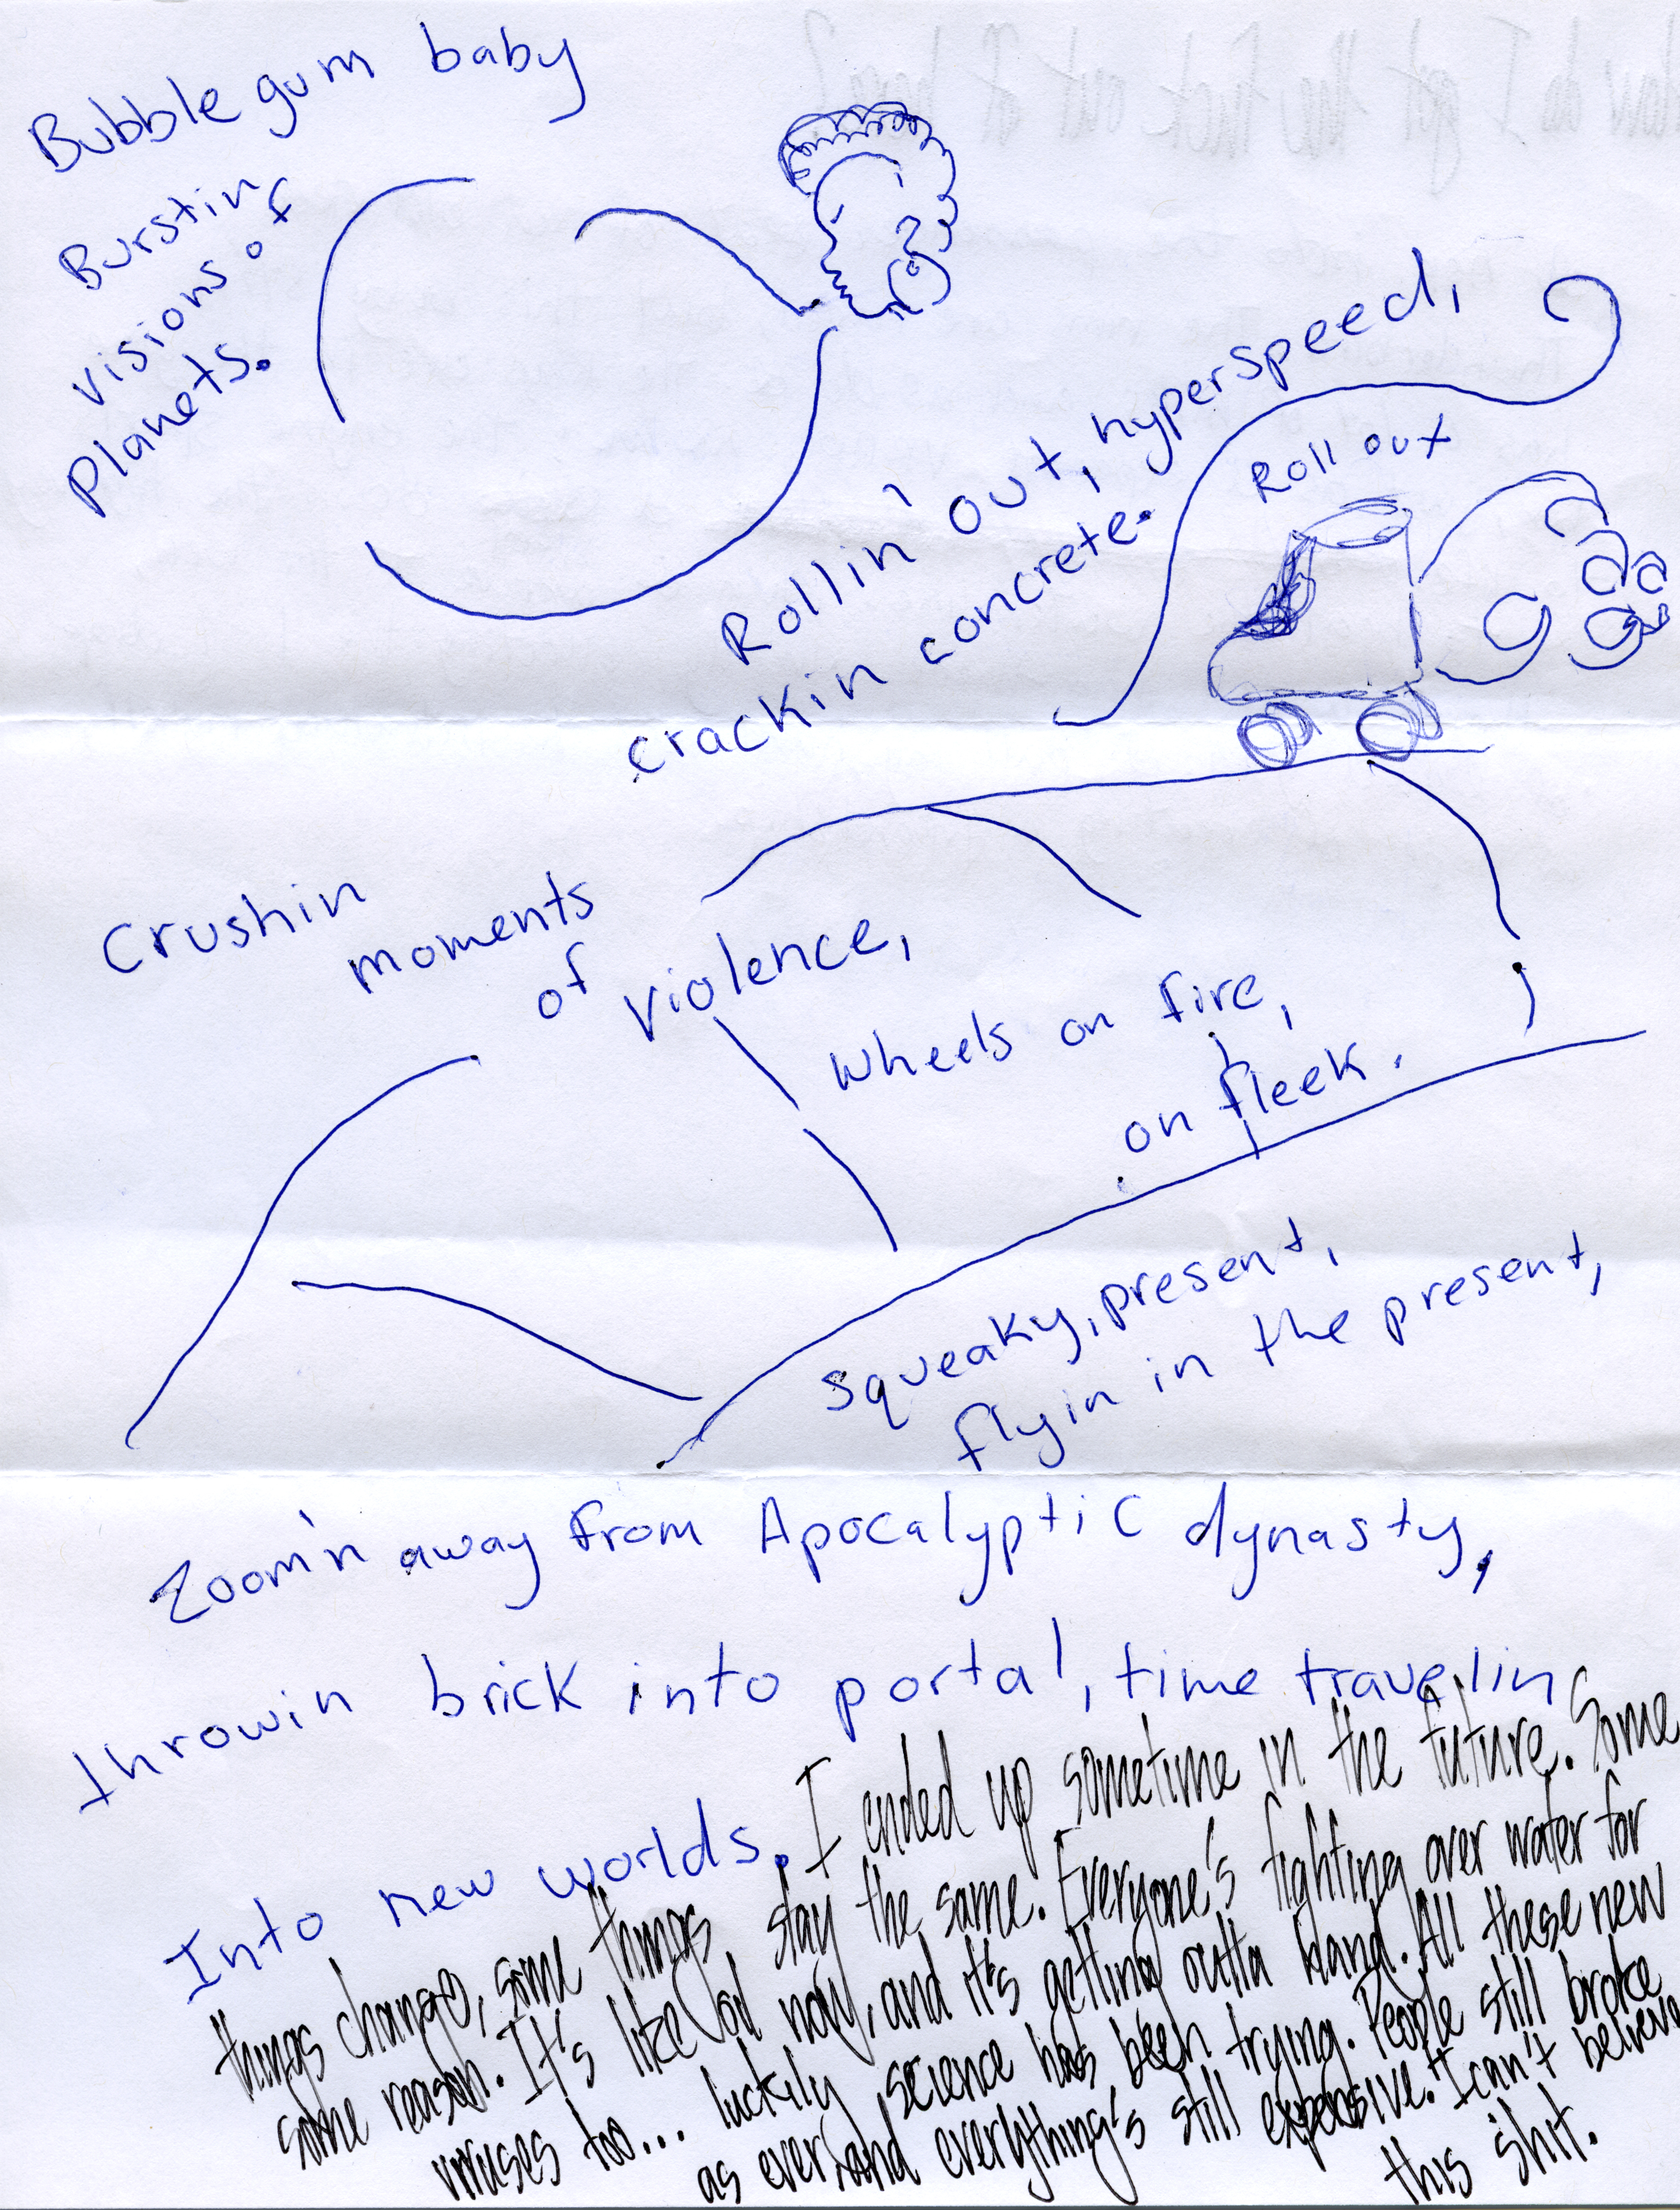 Bubble gum baby
Burstin
visions of
Planets.
Rollin' out, hyperspeed,
crackin concrete.
Roll out
Crushin
moments
of violence,
Wheels on fire,
on fleek.
squeaky, present,
flyin in the present,
Zoom'n away from Apocalyptic dynasty,
throwin brick into portal, time travelin
Into new worlds. I ended up sometime in the future. Some
things change, some things stay the same. Everyone's fighting over water for
some reason. It's like oil now, and it's getting outta hand. All these new
viruses too... luckily science has been trying. People still broke
as ever, and everything's still expensive. I can't believe
this shit.
How do I get the fuck out of here?